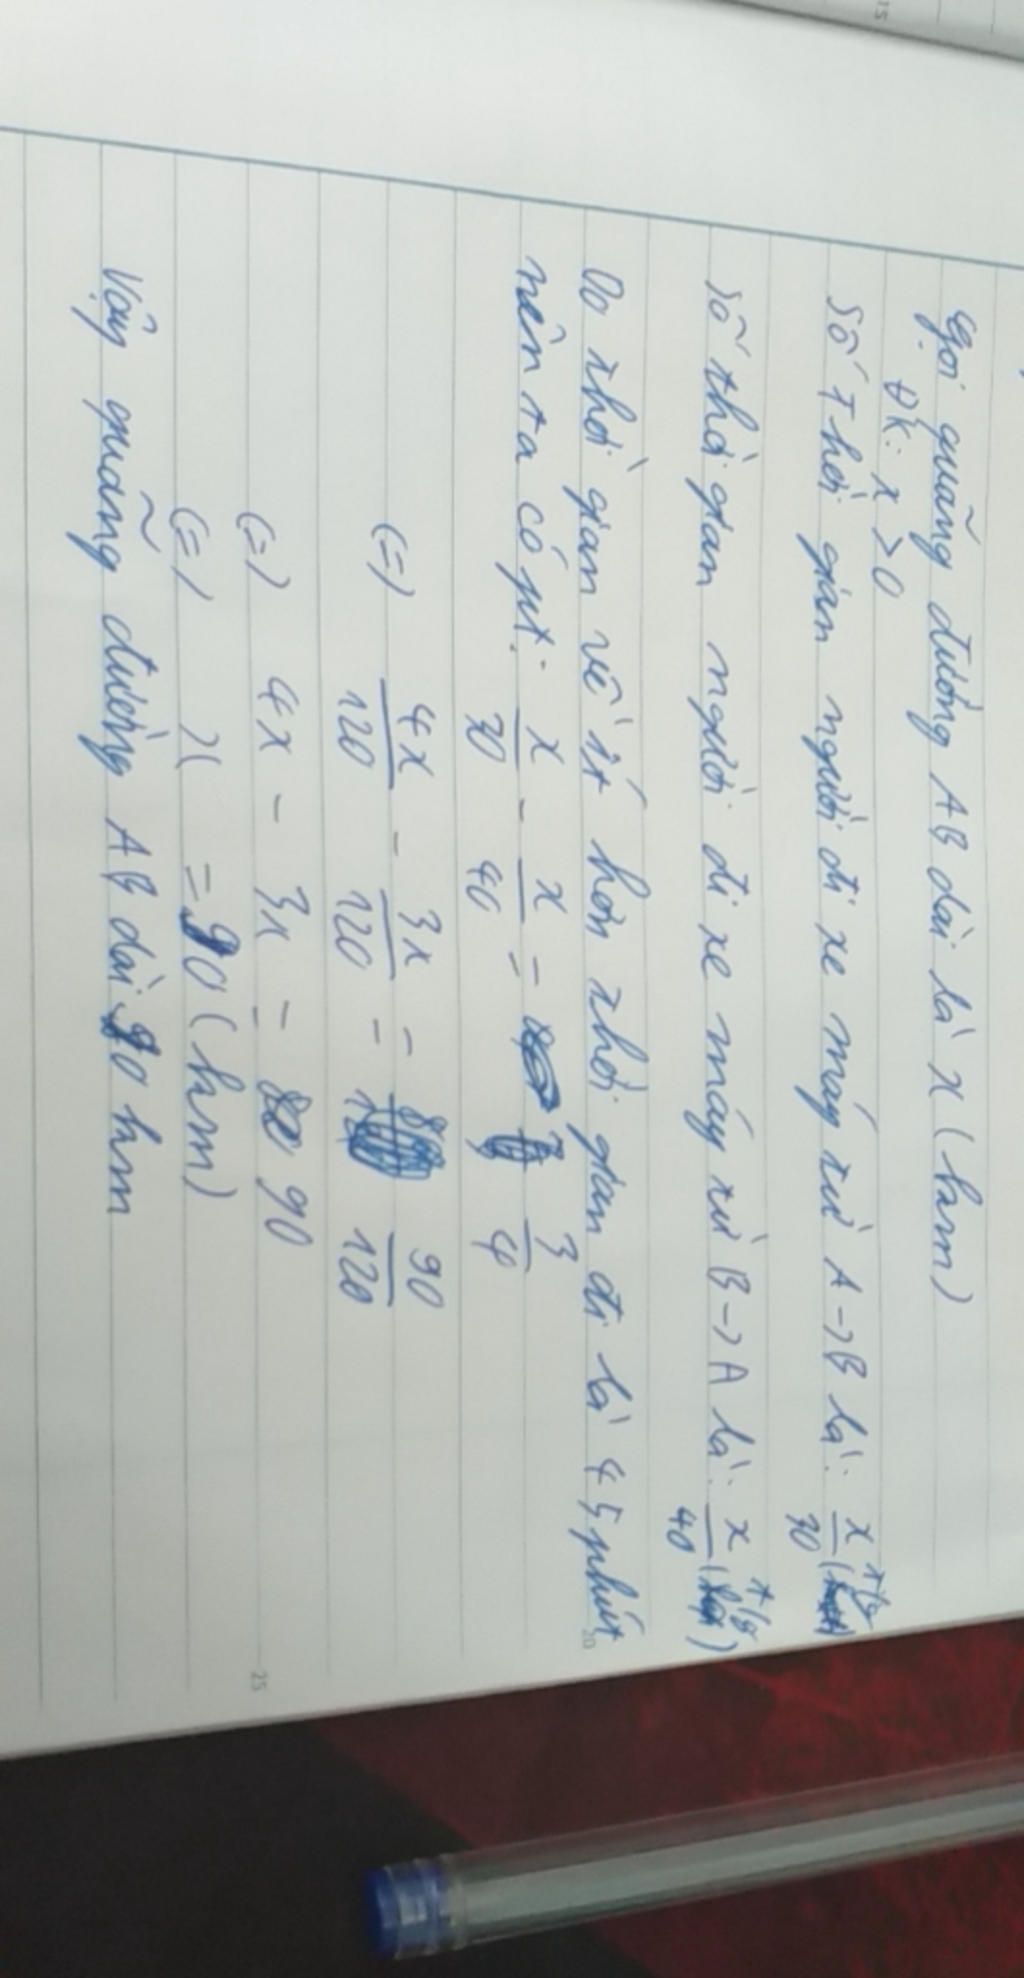 15
Gọi quãng đường AB dài là x (km)
Đk: x > 0
Số thời gian người đi xe máy từ A -> B là: x/30 (
Số thời gian người đi xe máy từ B -> A là: x/40 ( )
Do thời gian về ít hơn thời gian đi là 45 phút
20
nên ta có pt: x/30 - x/40 = 3/4
(=) 4x/120 - 3x/120 = 90/120
(=) 4x - 3x = 90
25
(=) x = 90 (km)
Vậy quãng đường AB dài 90 km